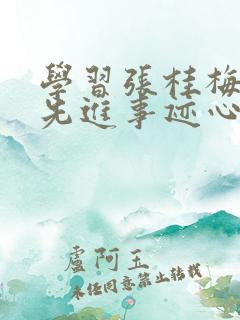 學習張桂梅
先進事迹心
盧阿玉
未經同意禁止轉載